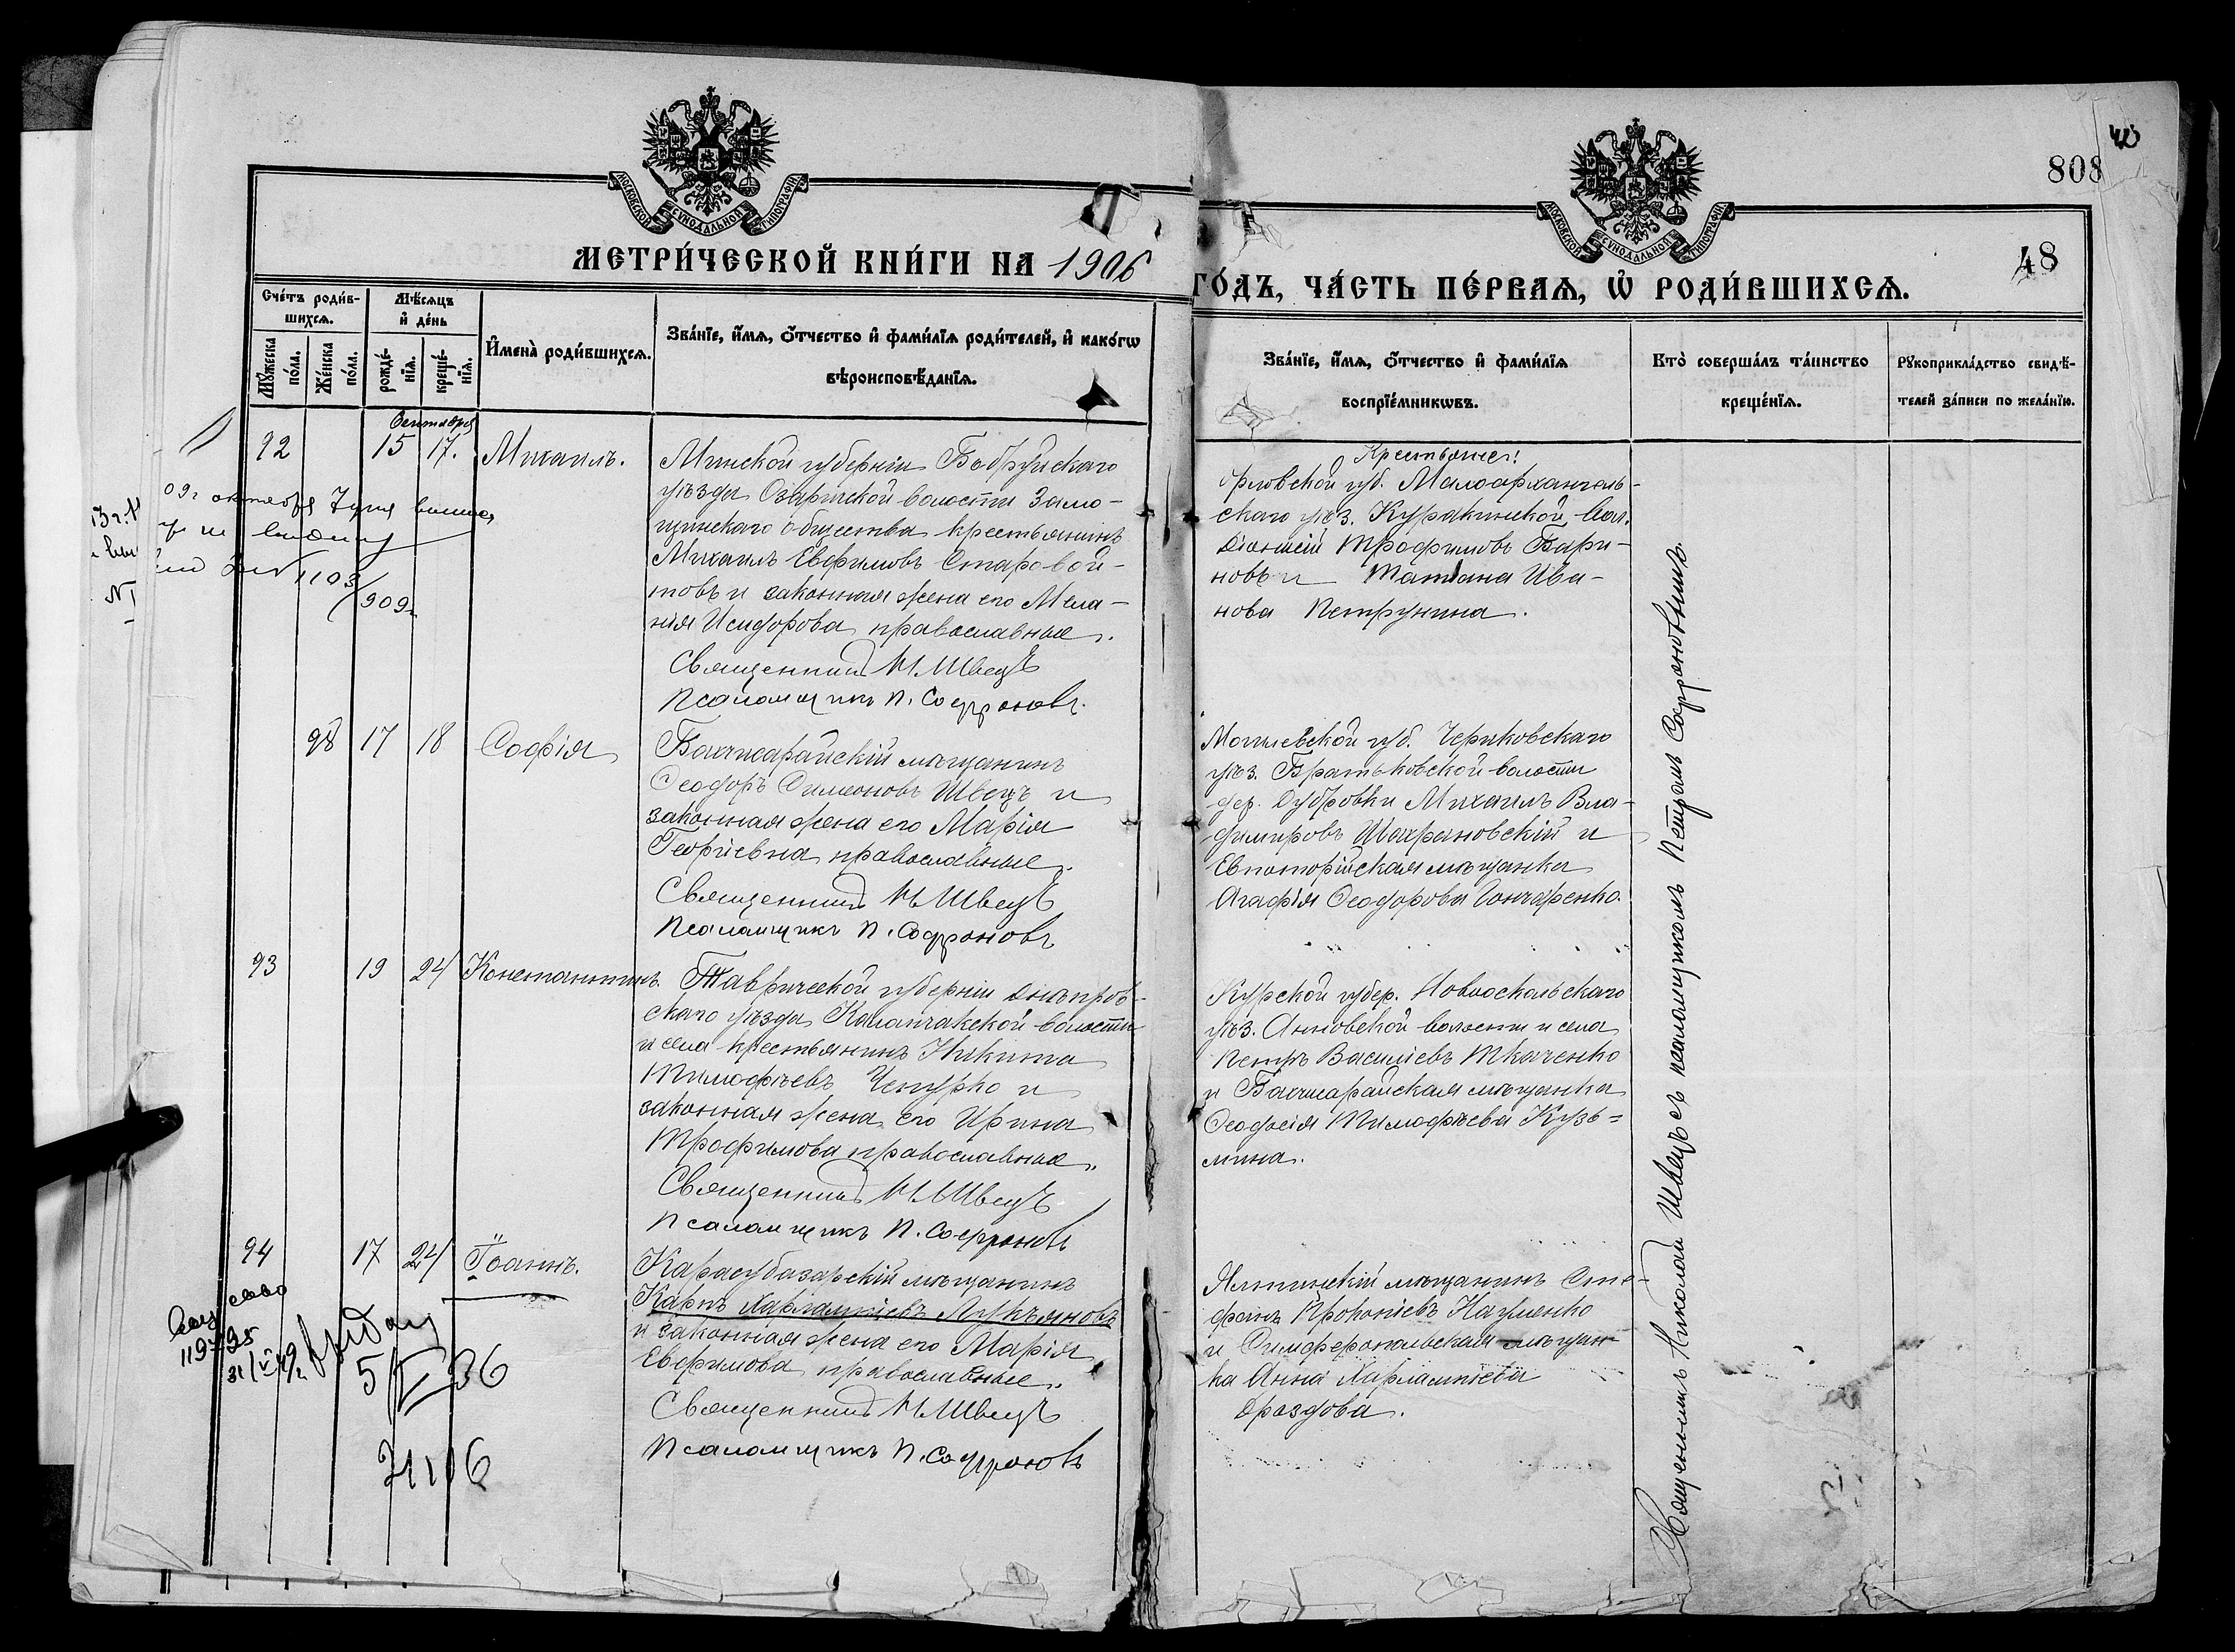 808
48
МОСКОВСКОЙ СѴНОДАЛЬНОЙ ТИПОГРАФІИ
МОСКОВСКОЙ СѴНОДАЛЬНОЙ ТИПОГРАФІИ
МЕТРИ́ЧЕСКОЙ КНИ́ГИ НА 1906
ГО́ДЪ, ЧА́СТЬ ПЕ́РВАЯ, Ѡ҆ РОДИ́ВШИХСѦ.
Сче́тъ роди́в-
шихсѧ.
Мꙋ́жеска по́ла.
Же́нска по́ла.
Мѣ́сѧцъ
и҆ де́нь
рожде́-нїѧ.
креще́-нїѧ.
И҆мена̀ роди́вшихсѧ.
Зва́нїе, и҆́мѧ, ѻ҆́тчество и҆ фами́лїѧ роди́телей, и҆ како́гѡ
вѣроисповѣ́данїѧ.
Зва́нїе, и҆́мѧ, ѻ҆́тчество и҆ фами́лїѧ
воспрїе́мникѡвъ.
Кто̀ соверша́лъ та́инство
креще́нїѧ.
Рꙋкоприкла́дство свидѣ́-
телей за́писи по жела́нїю.
Сентября
92 15 17. Михаилъ.
Минской губерніи Бобруйскаго
уѣзда Озаричской волости Замо-
щинскаго общества крестьянинъ
Михаилъ Евфимовъ Старовой-
товъ и законная жена его Мела-
нія Исидорова православные.
Священникъ Н. Швецъ
Псаломщикъ П. Софроновъ.
Крестьяне:
Орловской губ. Малоархангель-
скаго уѣз. Куракинской вол.
Діонисій Трофимовъ Бари-
новъ и Татіана Ива-
нова Петрунина.
09г октября
1103/909г
98 17 18 Софія
Бахчисарайскій мѣщанинъ
Ѳеодоръ Симеоновъ Швецъ и
законная жена его Марія
Георгіевна православные.
Священникъ Н. Швецъ
Псаломщикъ П. Софроновъ
Могилевской губ. Чериковскаго
уѣз. Братьковской волости
дер. Дубровки Михаилъ Вла-
димировъ Шафрановскій и
Евпаторійская мѣщанка
Агафія Ѳеодорова Гончаренко.
93 19 24 Константинъ.
Таврической губерніи Днѣпров-
скаго уѣзда Каланчакской волости
и села крестьянинъ Никита
Тимофѣевъ Чепурко и
законная жена его Ирина
Трофимова православные.
Священникъ Н. Швецъ
Псаломщикъ П. Софроновъ
Курской губер. Новооскольскаго
уѣз. Анновской волости и села
Петръ Василіевъ Ткаченко
и Бахчисарайская мѣщанка
Ѳеодосія Тимофѣева Кузь-
мина.
94 17 24 Іоаннъ.
Карасубазарскій мѣщанинъ
Карпъ Харлампіевъ Лукьяновъ
и законная жена его Марія
Евфимова православные.
Священникъ Н. Швецъ
Псаломщикъ П. Софроновъ
Ялтинскій мѣщанинъ Сте-
фанъ Прокопіевъ Науменко
и Симферопольская мѣщан-
ка Анна Харлампіева
Дроздова.
5/II 36
21106
Священникъ Николай Швецъ съ псаломщикомъ Петромъ Софроновымъ.